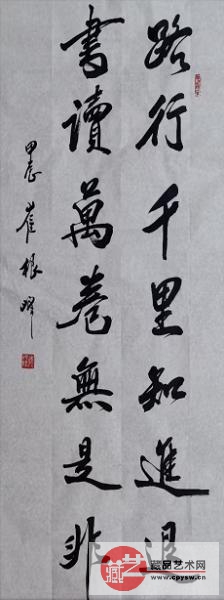 路行千里知進退
書讀萬卷無是非
甲辰 崔银峰
藏艺
藏品艺术网
www.cpysw.cn